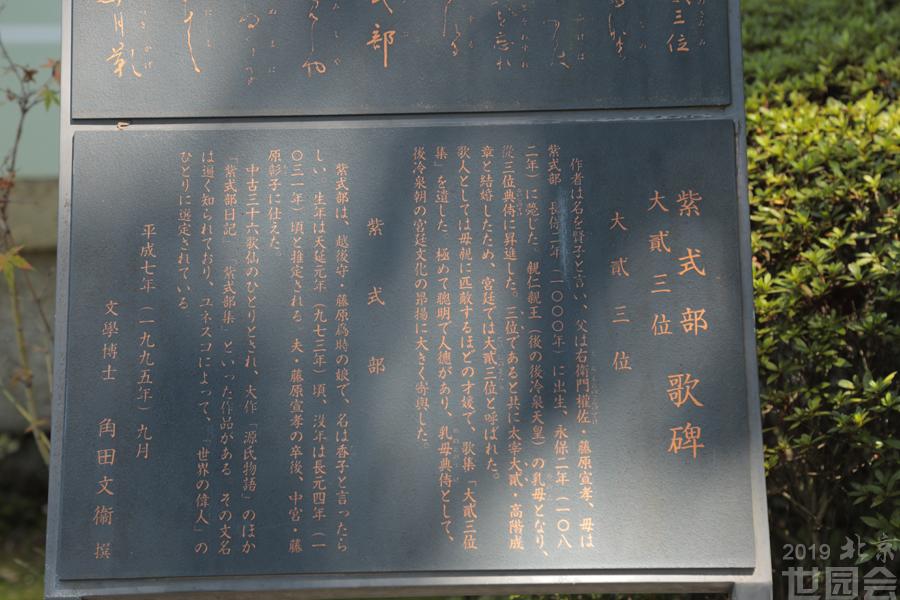 紫式部
大貳三位 歌碑
大貳三位
作者は名を賢子と言い、父は右衛門權佐・藤原宣孝、母は
紫式部 長保二年（一〇〇〇年）に出生、永保二年（一〇八
二年）に薨じた 親仁親王（後の後冷泉天皇）の乳母となり、
從三位典侍に昇進した。三位であると共に太宰大貳・高階成
章と結婚したため、宮廷では大貳三位と呼ばれた。
歌人としては母親に匹敵するほどの才媛で、歌集「大貳三位
集」を遺した 極めて聰明で人德があり、乳母典侍として、
後冷泉朝の宮廷文化の昂揚に大きく寄與した。
紫式部
紫式部は、越後守・藤原爲時の娘で、名は香子と言ったら
しい 生年は天延元年（九七三年）頃、沒年は長元四年（一
〇三一年）頃と推定される 夫・藤原宣孝の卒後、中宮・藤
原彰子に仕えた。
中古三十六歌仙のひとりとされ、大作「源氏物語」のほか
「紫式部日記」「紫式部集」といった作品がある その文名
は遍く知られており、ユネスコによって、「世界の偉人」の
ひとりに選定されている
平成七年（一九九五年）九月
文學博士 角田文衞 撰
2019 北京
世园会